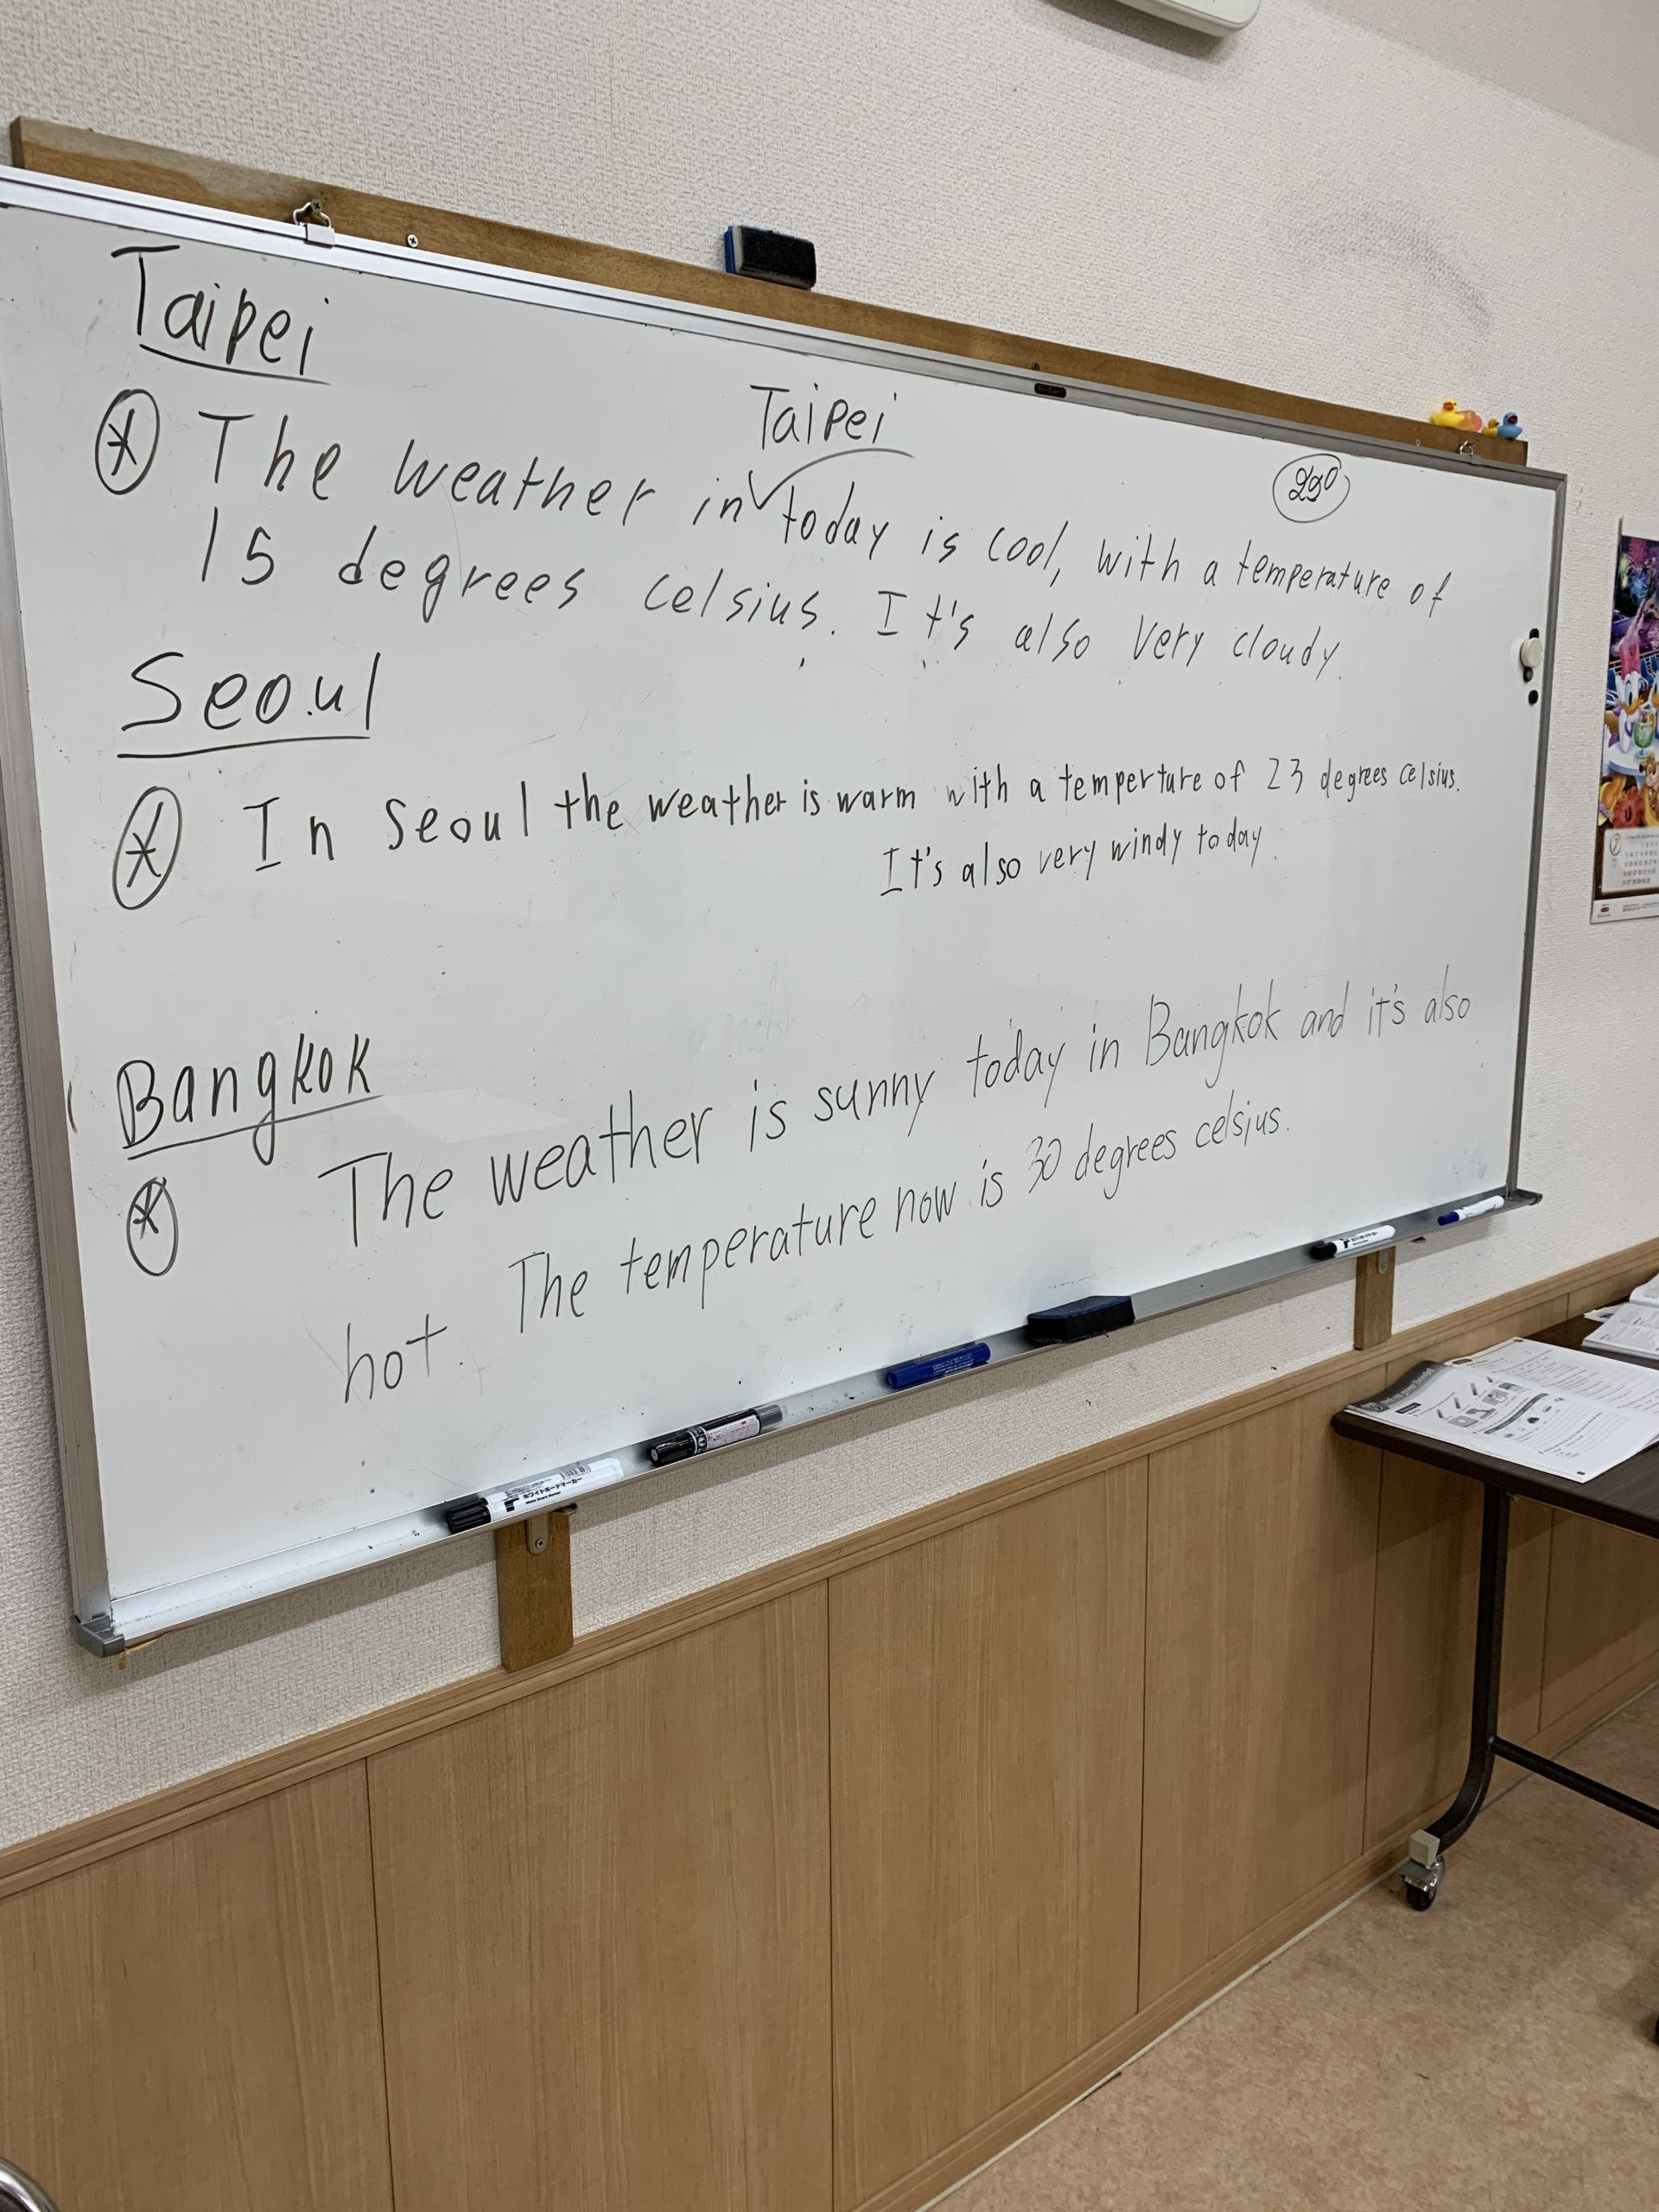 Taipei
Taipei
The weather in today is cool, with a temperature of
15 degrees celsius. It's also very cloudy.
Seoul
In Seoul the weather is warm with a temperture of 23 degrees celsius.
It's also very windy today.
Bangkok
The weather is sunny today in Bangkok and it's also
hot. The temperature now is 30 degrees celsius.
ホワイトボードマーカー